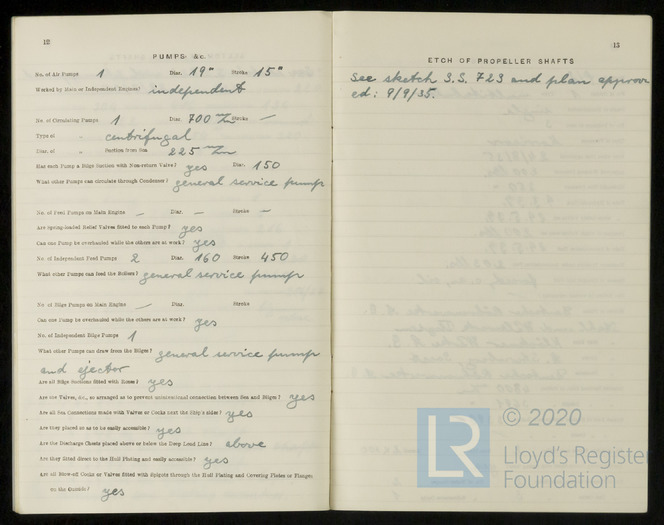 12
PUMPS &c.
No. of Air Pumps 1 Diar. 19" Stroke 15"
Worked by Main or Independent Engines? independent
No. of Circulating Pumps 1 Diar. 700 m/m Stroke —
Type of " centrifugal
Diar. of " Suction from Sea 225 m/m
Has each Pump a Bilge Suction with Non-return Valve? yes Diar. 150
What other Pumps can circulate through Condenser? general service pump
No. of Feed Pumps on Main Engine — Diar. — Stroke —
Are Spring-loaded Relief Valves fitted to each Pump? yes
Can one Pump be overhauled while the others are at work? yes
No. of Independent Feed Pumps 2 Diar. 160 Stroke 450
What other Pumps can feed the Boilers? general service pump
No. of Bilge Pumps on Main Engine — Diar. Stroke
Can one Pump be overhauled while the others are at work? yes
No. of Independent Bilge Pumps 1
What other Pumps can draw from the Bilges? general service pump
and ejector
Are all Bilge Suctions fitted with Roses? yes
Are the Valves, &c., so arranged as to prevent unintentional connection between Sea and Bilges? yes
Are all Sea Connections made with Valves or Cocks next the Ship's sides? yes
Are they placed so as to be easily accessible? yes
Are the Discharge Chests placed above or below the Deep Load Line? above
Are they fitted direct to the Hull Plating and easily accessible? yes
Are all Blow-off Cocks or Valves fitted with Spigots through the Hull Plating and Covering Plates or Flanges
on the Outside? yes
13
ETCH OF PROPELLER SHAFTS
See sketch S.S. 723 and plan approv
ed: 9/9/35.
LR
© 2020
Lloyd's Register
Foundation